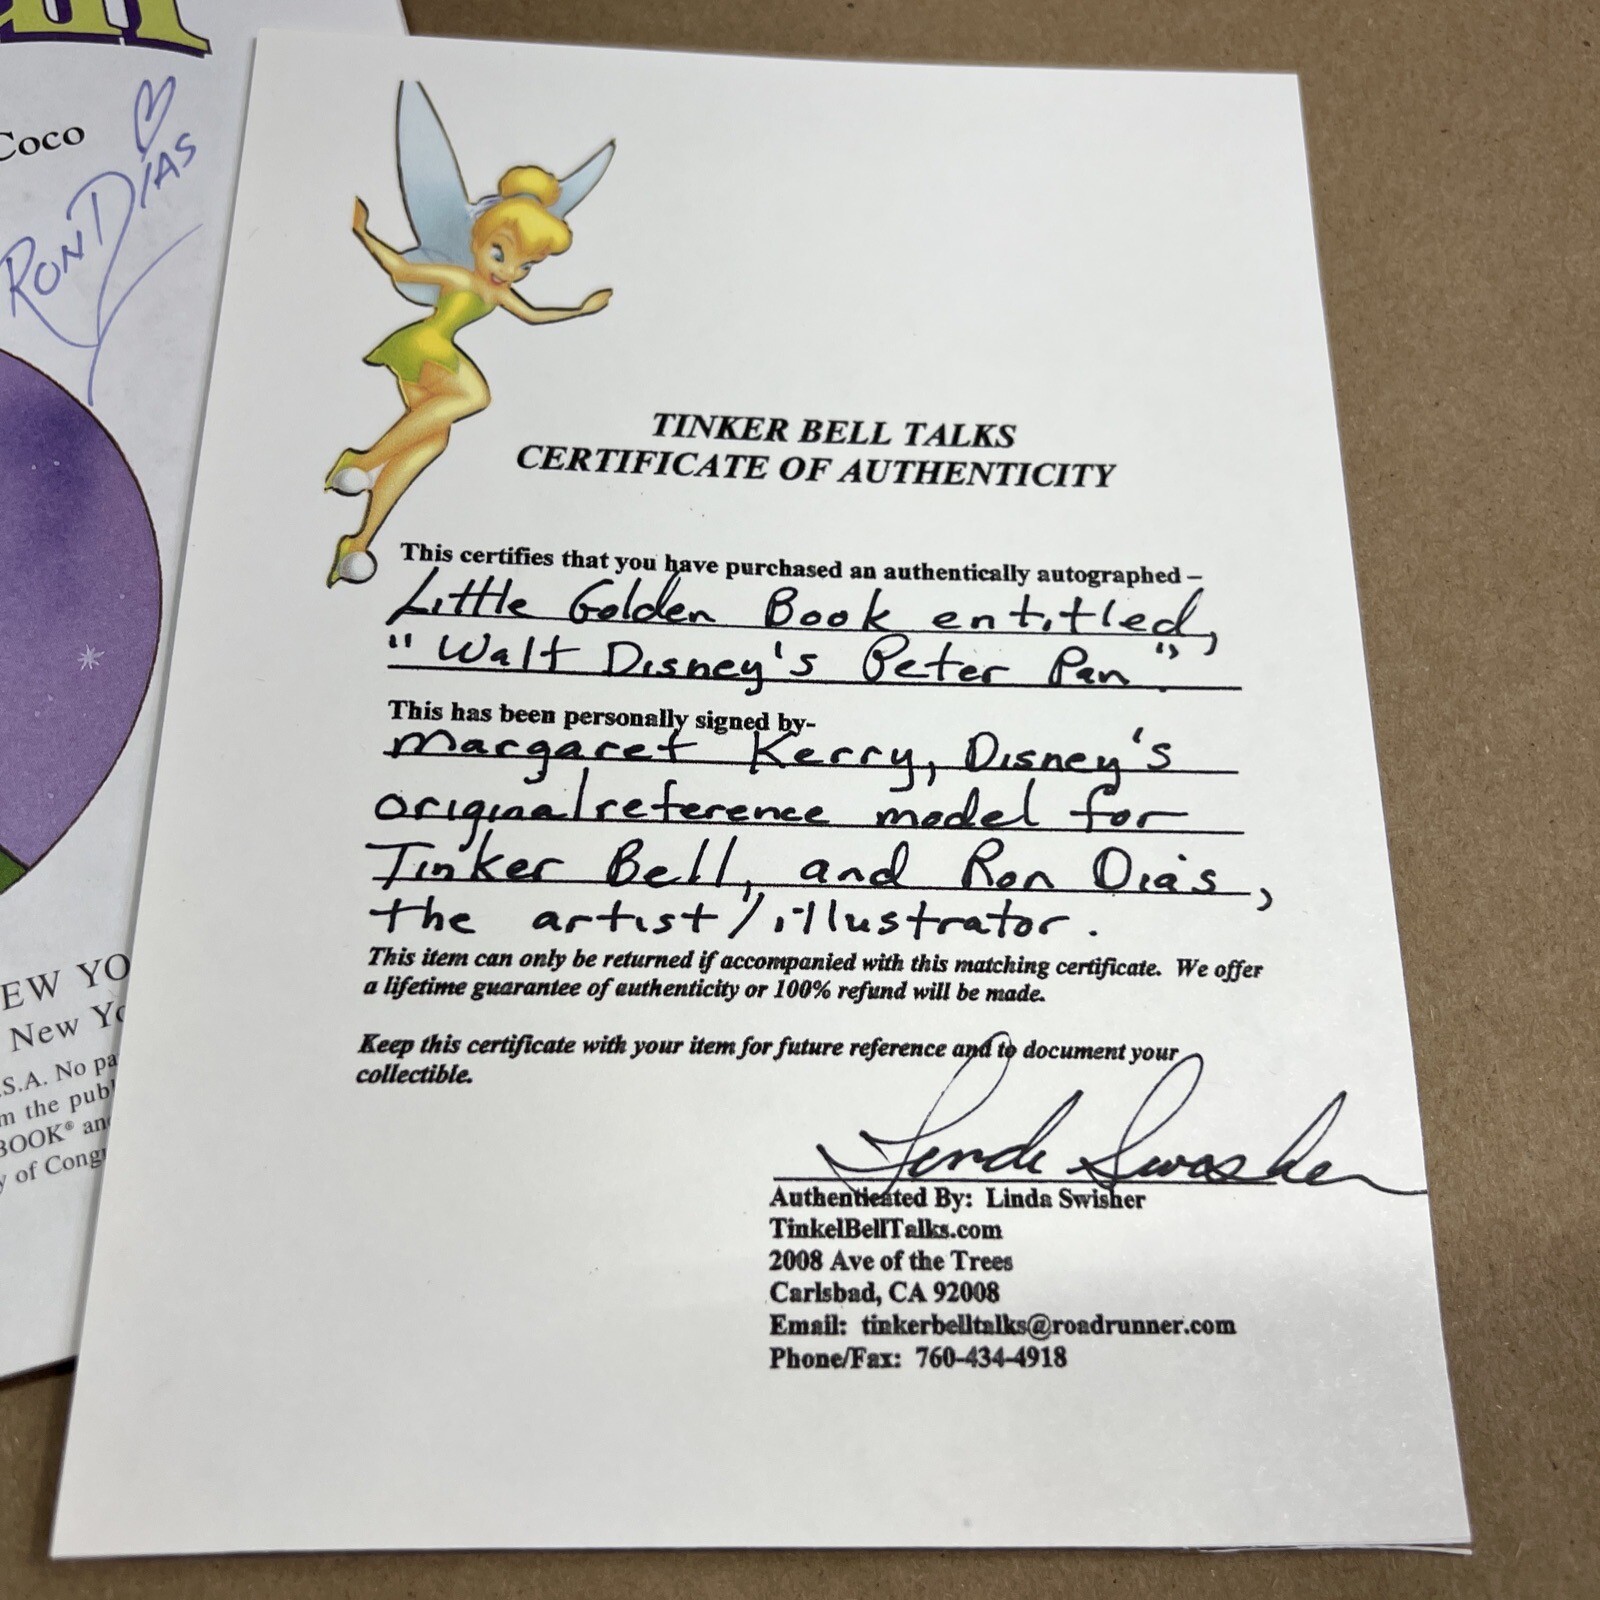 Coco
RON DIAS
EW YO
New Yo
S.A. No pa
m the publ
BOOK® and
y of Congr
TINKER BELL TALKS
CERTIFICATE OF AUTHENTICITY
This certifies that you have purchased an authentically autographed –
Little Golden Book entitled,
"Walt Disney's Peter Pan".
This has been personally signed by-
Margaret Kerry, Disney's
original reference model for
Tinker Bell, and Ron Dias,
the artist/illustrator.
This item can only be returned if accompanied with this matching certificate. We offer
a lifetime guarantee of authenticity or 100% refund will be made.
Keep this certificate with your item for future reference and to document your
collectible.
Linda Swisher
Authenticated By: Linda Swisher
TinkelBellTalks.com
2008 Ave of the Trees
Carlsbad, CA 92008
Email: tinkerbelltalks@roadrunner.com
Phone/Fax: 760-434-4918